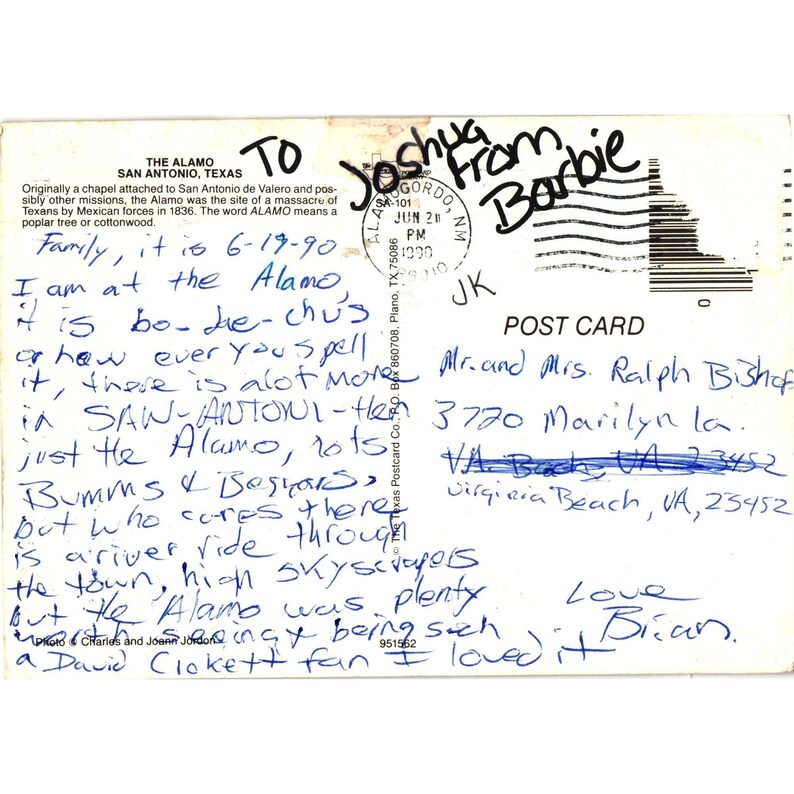 THE ALAMO
SAN ANTONIO, TEXAS
Originally a chapel attached to San Antonio de Valero and pos-
sibly other missions, the Alamo was the site of a massacre of
Texans by Mexican forces in 1836. The word ALAMO means a
poplar tree or cottonwood.
TO Joshua
From
Barbie
Family, it is 6-19-90
I am at the Alamo,
it is bo-de-chus
or how ever you spell
it, there is alot more
in SAN-ANTONI-then
just the Alamo, lots
Bumms & Begyars,
but who cares there
is a river ride through
the town, high skyscrapers
but the Alamo was plenty
worth seeing being such
a David Crokett fan I loved it
Photo © Charles and Joann Jordon
951562
© The Texas Postcard Co., P.O. Box 860708, Plano, TX 75086
SA-101
ALAMOGORDO, NM
JUN 21
PM
1990
88310
JK
0 1
POST CARD
Mr. and Mrs. Ralph Bishop
3720 Marilyn la.
VA Beach, VA 23452
Virginia Beach, VA, 23452
Love
Brian.